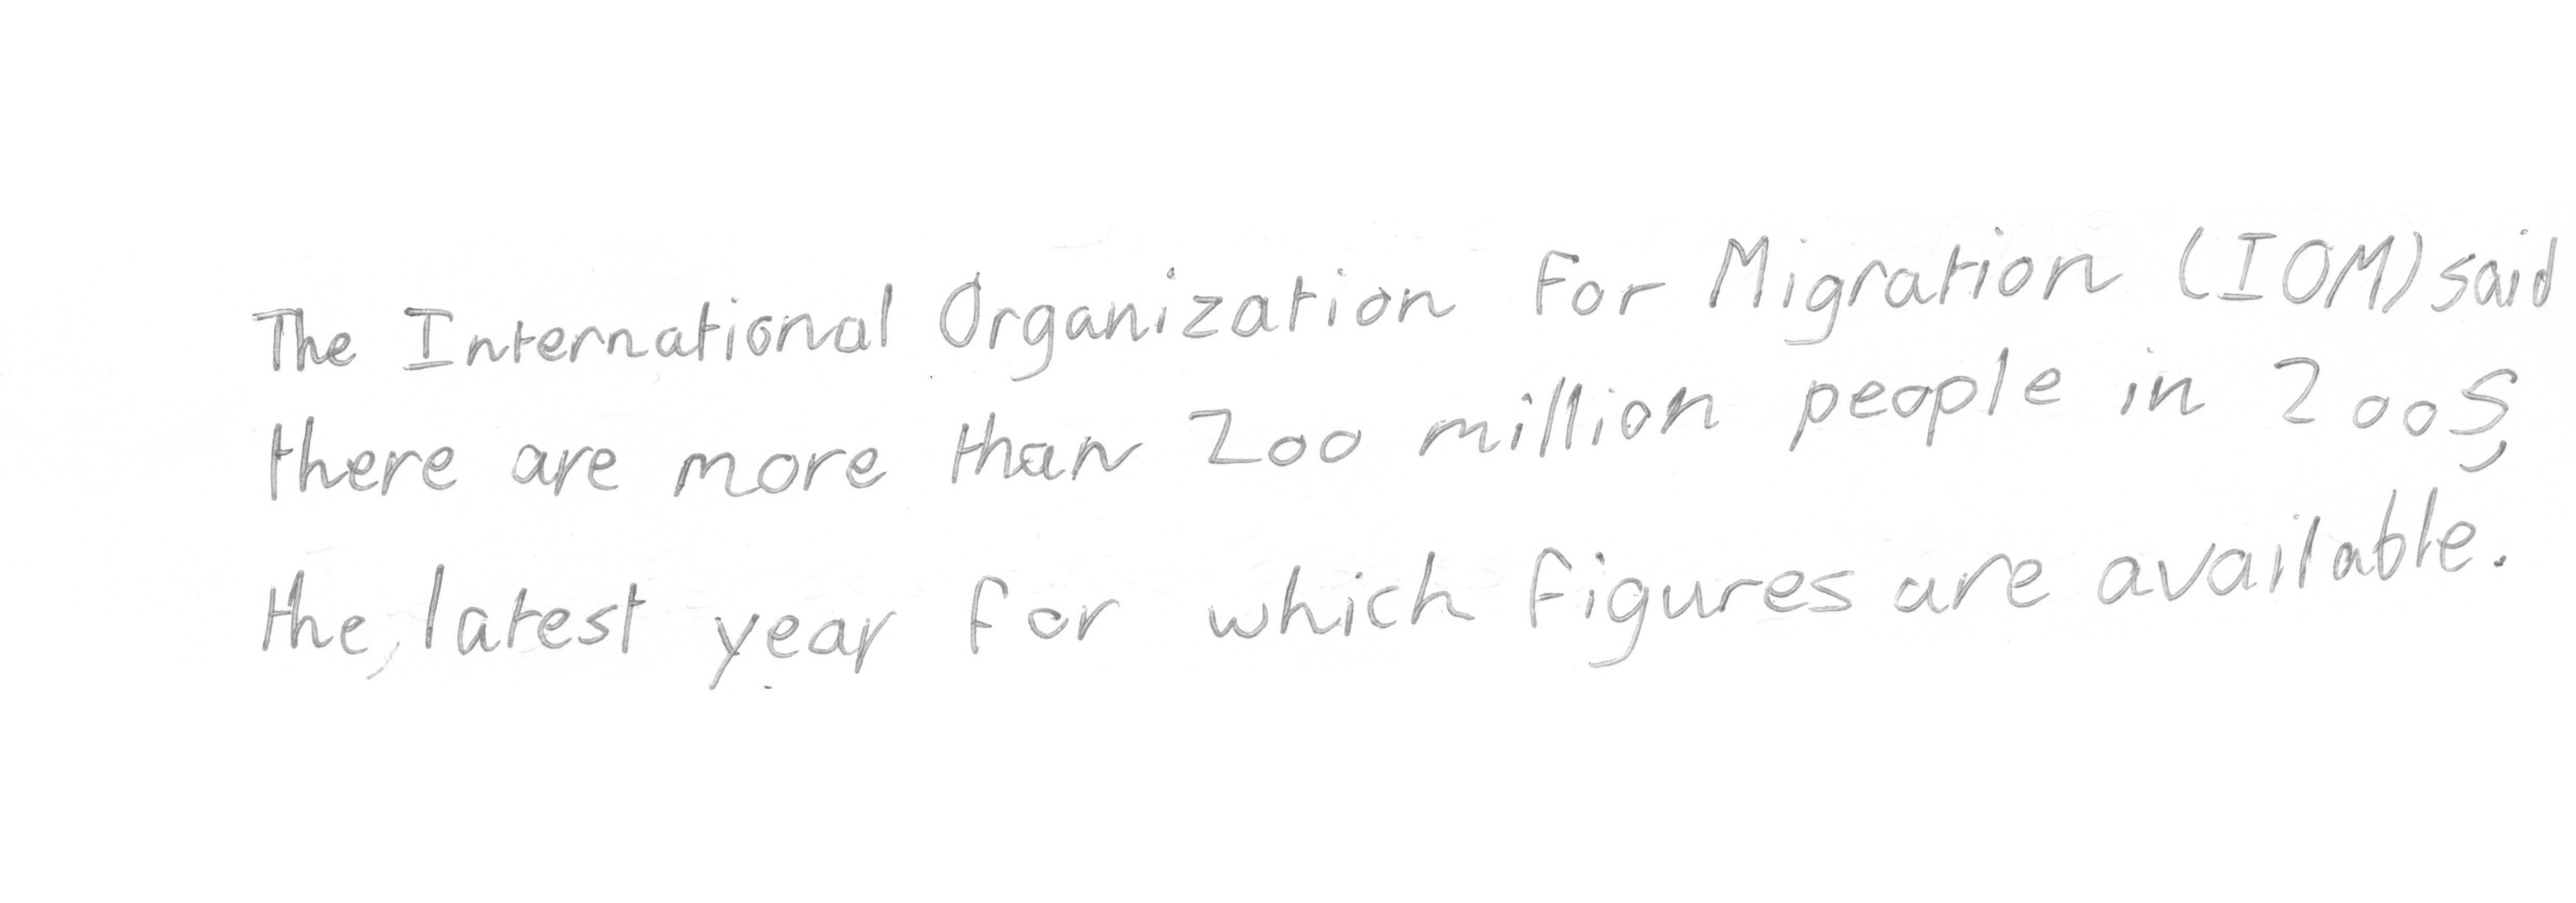 The International Organization for Migration (IOM) said
there are more than 200 million people in 2005,
the, latest year for which figures are available.